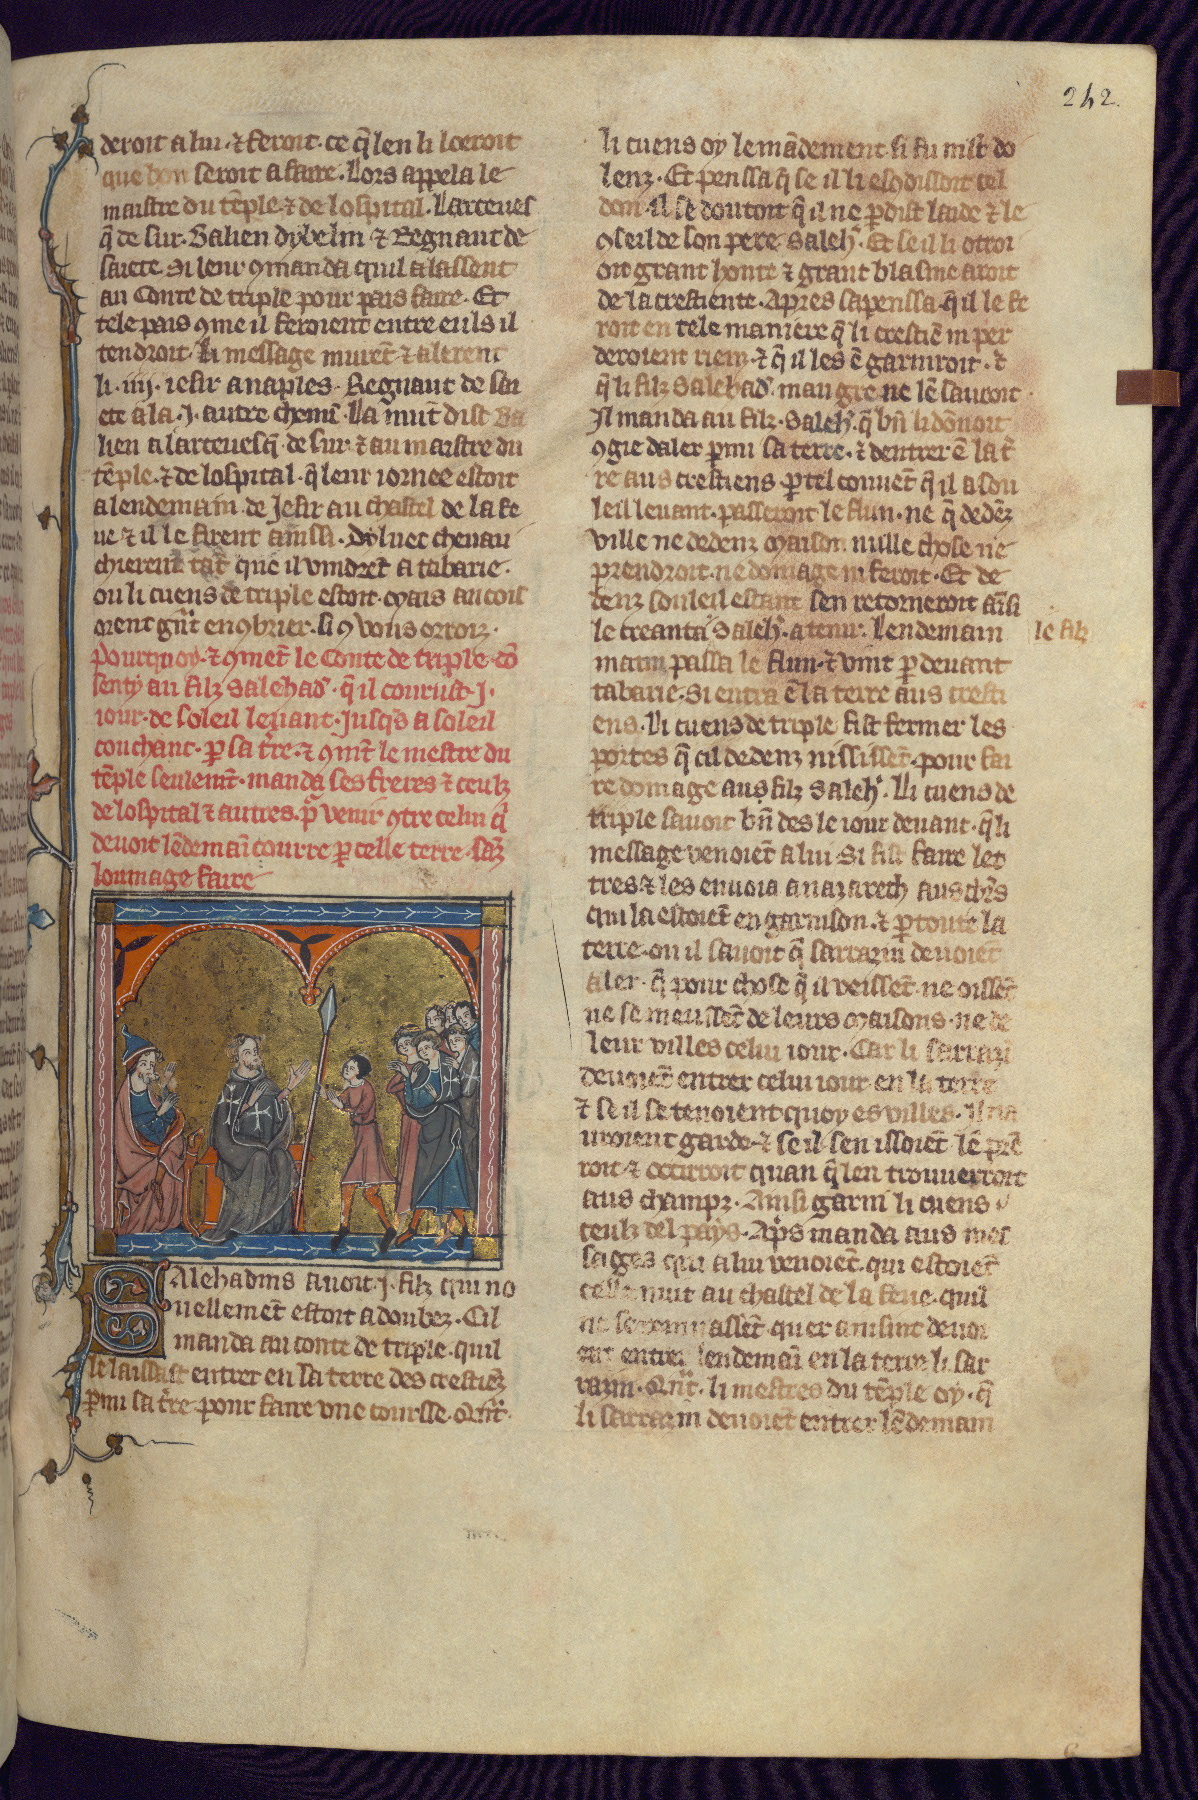 242.
deroit a lui · ⁊ feroit · ce q̃ len li loeroit
que bon seroit a faire · Lors appela le
maistre du tẽple ⁊ de lospital · Larceues
q̃ de sur · Balien dybelin ⁊ Regnaut de
saiete Si leur ꝯmanda quil alassent
au Conte de triple pour pais faire · Et
tele pais ꝯme il feroient entre euls il
tendroit · Li message murẽt ⁊ alerent
li · iiij · iesir a naples · Regnaut de sai
ete ala · j · autre chemĩ · La nuit dist Ba
lien a larceuesq̃ · de sur · ⁊ au maistre du
tẽple · ⁊ de lospital · q̃ leur iornee estoit
a lendemain · de Jesir au chastel de la fe
ue ⁊ il le firent ainssi · Dyluec cheuau
chierent tãt que il vindrẽt a tabarie ·
ou li cuens de triple estoit · Mais aucois
orent grãt enꝯbrier · si ꝯ vous orroiz ·
Pourquoy · ⁊ ꝯmẽt le Conte de triple · cõ
senty au filz Salehad' · q̃ il courust · j ·
iour · de soleil leuant · Jusqs a soleil
couchant · ꝑ sa t̃re · ⁊ ꝯmt̃ le mestre du
tẽple seulemt̃ · manda ses freres ⁊ ceulz
de lospital ⁊ autres · pͬ venir ꝯtre celui q̃
deuoit lẽdemaĩ courre ꝑ celle terre · sãz
doumage faire
Salehadins auoit · j · filz qui no
uellemẽt estoit adoubez · Cil
manda au conte de triple · quil
le laissast entrer en sa terre des crestiẽz
ꝑmi sa t̃re · pour faire vne coursse · Qñt ·
li cuens oy le mãdement · si fu mlt̃ do
lenz · Et penssa q̃ se il li escõdissoit cel
don · il se doutoit q̃ il ne ꝑdist laide ⁊ le
ꝯseil de son pere Saleh' · Et se il li otroi
oit grant honte ⁊ grant blasme aroit
de la crestiente · Apres sapenssa · q̃ il le fe
roit en tele maniere q̃ li crestiẽ ni per
deroient riem · ⁊ q̃ il les ẽ garniroit · ⁊
q̃ li filz Salehad' · maugre ne lẽ sauroit
Il manda au filz · Saleh' · q̃ bñ li dõnoit
ꝯgie daler ꝑmi sa terre · ⁊ dentrer ẽ la t̃
re aus crestiens · ꝑ tel conuẽt q̃ il a sou
leil leuant · passeroit le flun · ne q̃ dedẽz
ville ne dedenz Maison nulle chose ne
prendroit · ne domage ni feroit · Et de
denz souleil estant sen retorneroit aĩsi
le creanta Saleh' · a tenir · Lendemain
le filz
matin passa le flun · ⁊ vint ꝑ deuant
tabarie · Si entra ẽ la terre aus cresti
ens · Li cuens de triple fist fermer les
portes q̃ cil dedenz nississẽt · pour fai
re domage aus filz Saleh' · Li cuens de
triple sauoit bñ des le iour deuant · q̃ li
message venoiẽt a lui Si fist faire let
tres ⁊ les enuoia a nazarech aus chr̃s
qui la estoiẽt en garnison · ⁊ ꝑ toute la
terre · ou il sauoit q̃ sarrazin deuoiẽt
aler · q̃ pour chose q̃ il veissẽt · ne oissẽt
ne se meussẽt de leurs Maisons · ne de
leur villes celui iour · Car li sarrazĩ
deuoiẽt entrer celui iour en la terre
⁊ se il se tenoient quoy es villes · il na
uroient garde · ⁊ se il sen issoiẽt lẽ prẽ
roit ⁊ occirroit quan q̃ len trouuerroit
aus champz · Ainsi garni li cuens
ceulz del pays · Apͬs manda aus mes
sages qui a lui venoiẽt · qui estoiẽt
celle nuit au chastel de la feue · quil
ne se remuassẽt · quer ainsint deuoi
ent entrer lendemaĩ en la terre li sar
razin · Qñt · li mestres du tẽple oy · q̃
li sarrazin deuoiẽt entrer lẽdemain